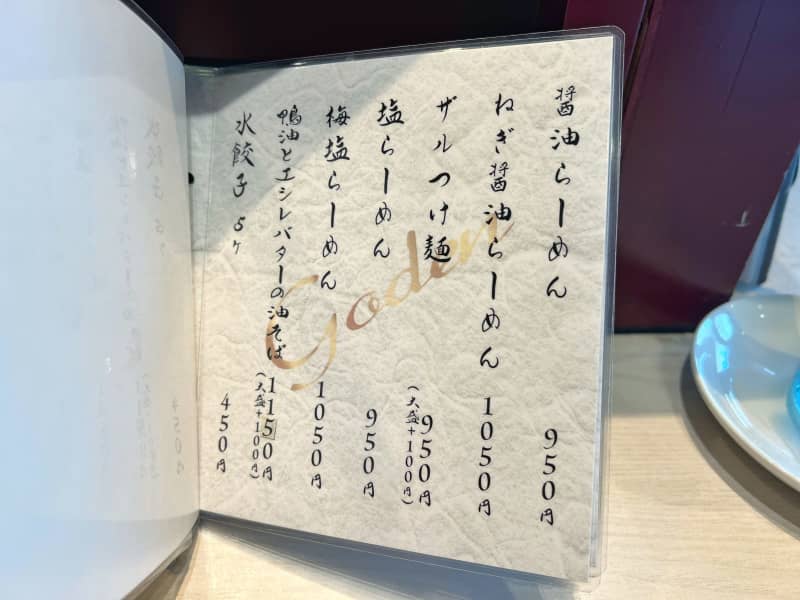 醤油らーめん 950円
ねぎ醤油らーめん 1050円
ザルつけ麺 950円
(大盛+100円)
塩らーめん 950円
梅塩らーめん 1050円
鴨油とエシレバターの油そば 1150円
(大盛+100円)
水餃子 5ヶ 450円
Goden